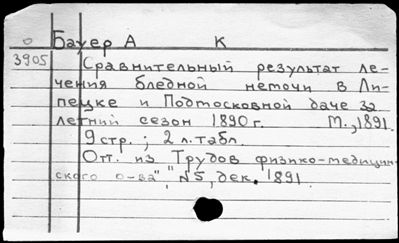 о Бауер А К
3905 Сравнительный результат ле-
чения бледной немочи в Ли-
пецке и Подмосковной даче за
летний сезон 1890 г. М., 1891.
9 стр.; 2 л. табл.
Отт. из Трудов физико-медицин-
ского о-ва", N5, дек. 1891